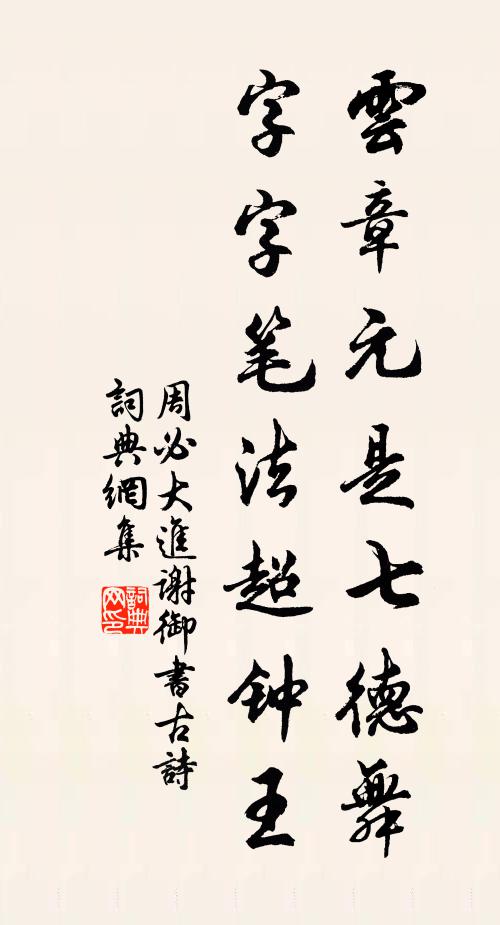 雲章元是七德舞
字字笔法超钟王
周必大進谢御書古詩
詞典網集
詞典网印